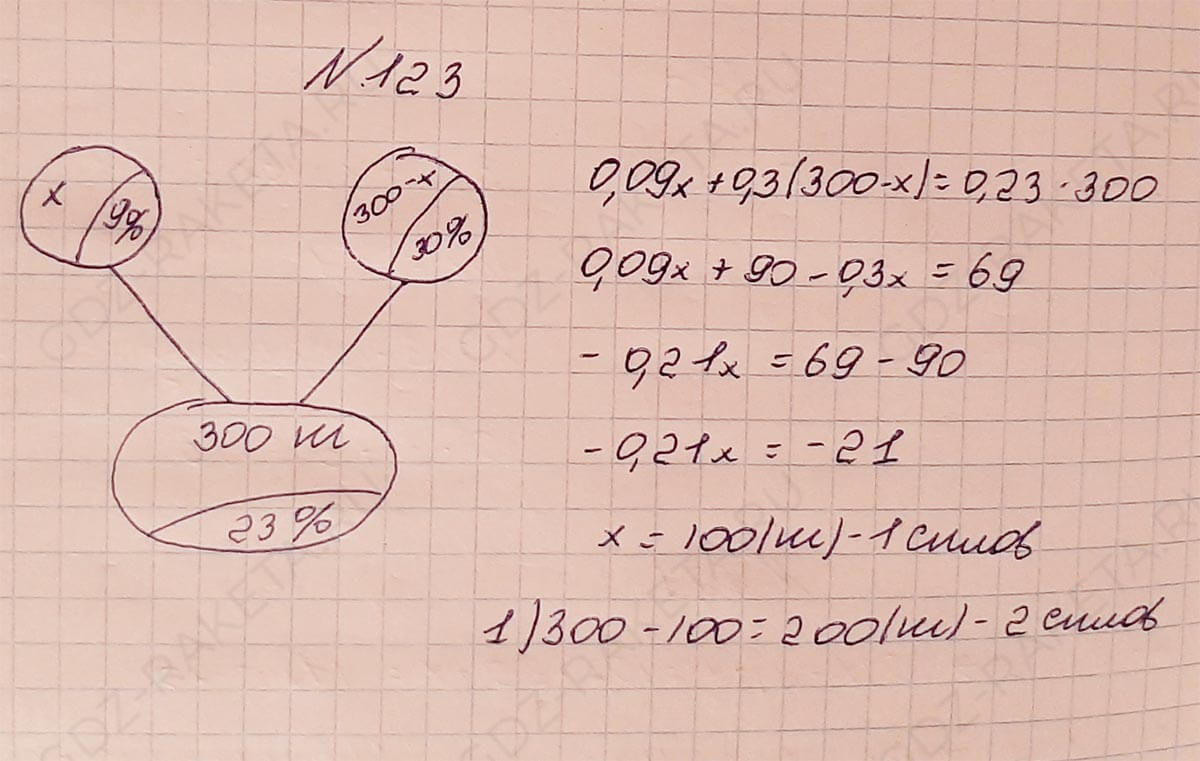 N.123
x
9%
300-x
30%
300 кг
23%
0,09x + 0,3(300-x) = 0,23 · 300
0,09x + 90 - 0,3x = 69
- 0,21x = 69 - 90
- 0,21x = -21
x = 100(кг) - 1 сплав
1) 300 - 100 = 200(кг) - 2 сплав
GDZ-RAKETA.RU